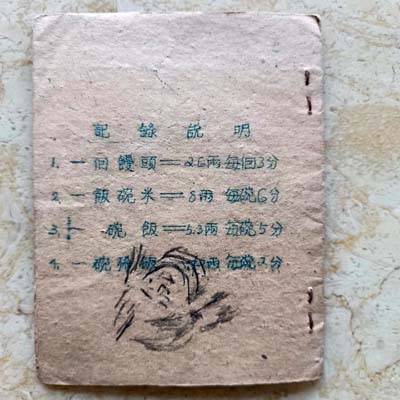 記錄說明
1. 一個饅頭=2.5兩每個3分
2. 一飯碗米=8兩每碗6分
3. 一碗飯=5.3兩每碗5分
4. 一碗稀飯 兩每碗2分